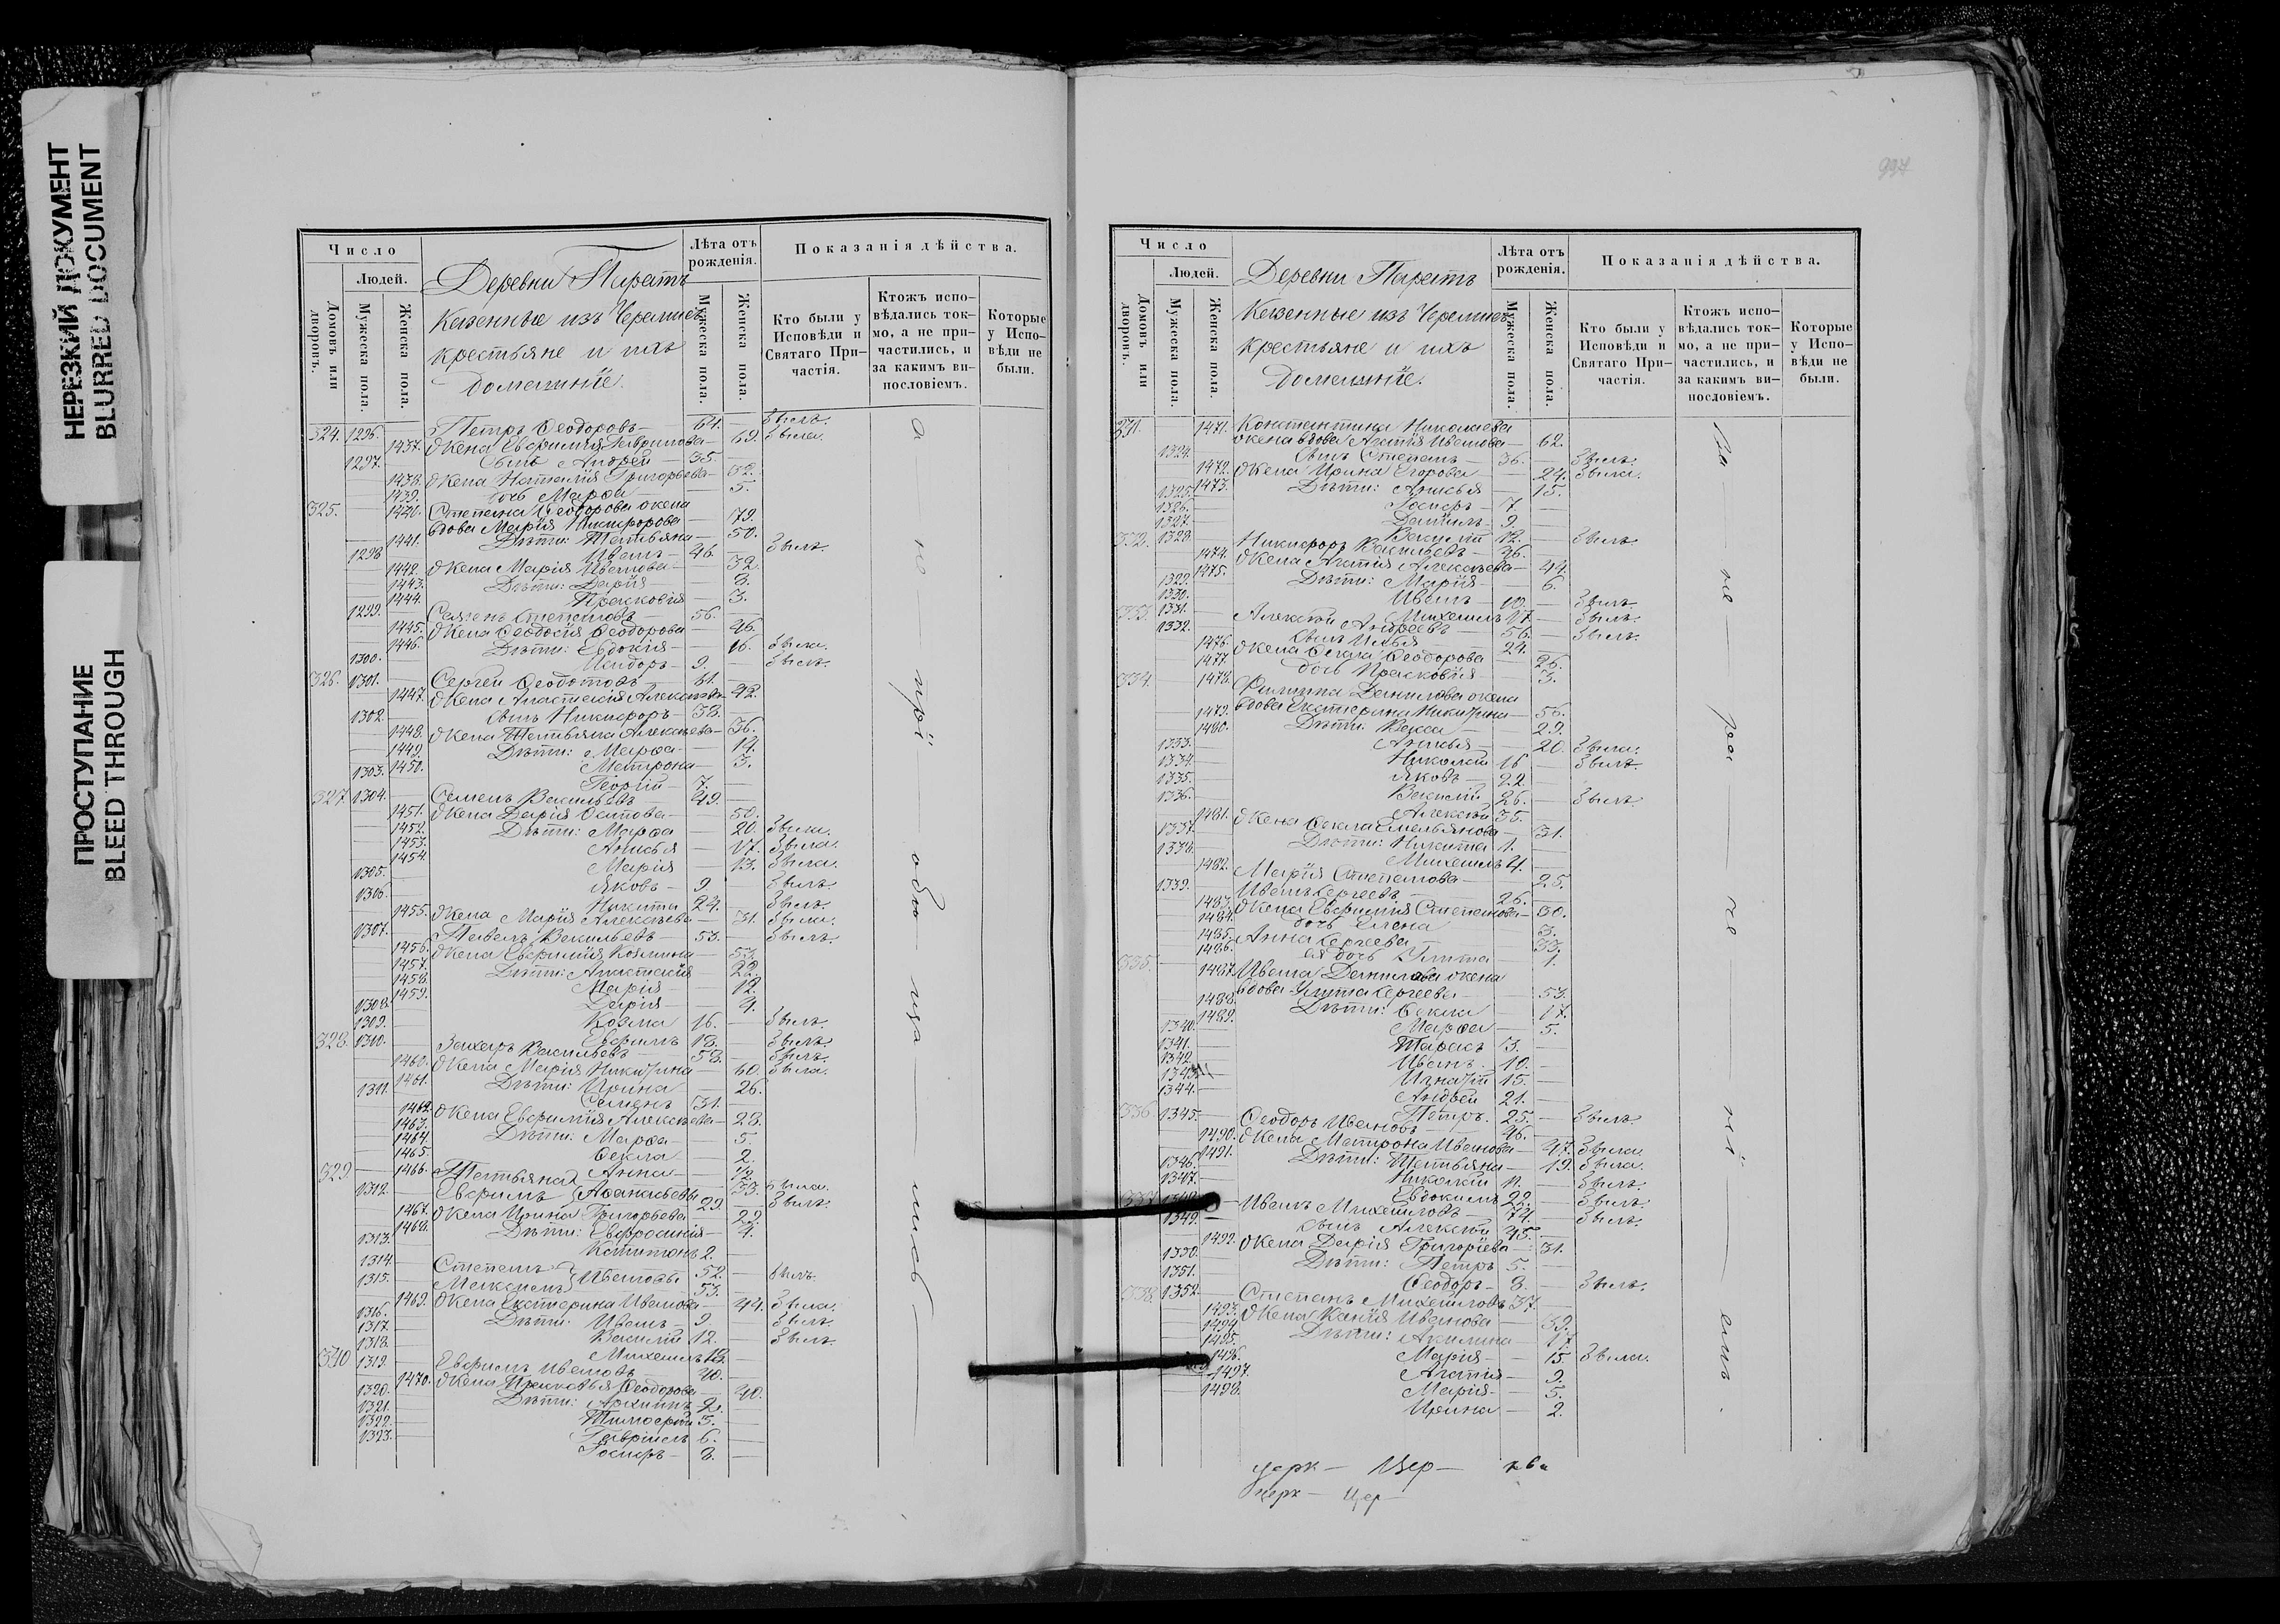 НЕРЕЗКИЙ ДОКУМЕНТ
BLURRED DOCUMENT
ПРОСТУПАНИЕ
BLEED THROUGH
Число
Людей.
Домовъ или дворовъ.
Мужеска пола.
Женска пола.
Деревни Паратъ
Казенные изъ Черемисъ
крестьяне и ихъ
домашніе.
Лѣта отъ рожденія.
Мужеска пола.
Женска пола.
Показанія дѣйства.
Кто были у Исповѣди и Святаго Причастія.
Ктожъ исповѣдались токмо, а не причастились, и за какимъ винословіемъ.
Которые у Исповѣди не были.
324. 1296. Петръ Ѳеодоровъ 64. былъ.
1437. Жена Евфимія Гаврилова 69. была.
1297. Сынъ Андрей 35.
1438. Жена Наталія Григорьева 32.
1439. дочь Марѳа 5.
325. 1440. Степана Ѳеодорова жена
вдова Марія Никифорова 79.
1441. Дѣти: Татьяна 50.
1298. Иванъ 46. былъ.
1442. Жена Марія Иванова 32.
1443. Дѣти: Дарія 8.
1444. Прасковія 3.
1299. Семенъ Степановъ 56.
1445. Жена Ѳеодосія Ѳеодорова 46.
1446. Дѣти: Евдокія 16. была.
1300. Исидоръ 9. былъ.
326. 1301. Сергей Ѳедотовъ 61.
1447. Жена Анастасія Алексѣева 42.
1302. сынъ Никифоръ 38.
1448. Жена Татьяна Алексѣева 36.
1449. Дѣти: Марѳа 14.
1450. Матрона 3.
1303. Георгій 7.
327. 1304. Семенъ Васильевъ 49.
1451. Жена Дарія 50.
1452. Дѣти: Марѳа 20. была.
1453. Анисья 17. была.
1454. Марія 13. была.
1305. Яковъ 9. былъ.
1306. Никита 24. былъ.
1455. Жена Марія Алексѣева 31. была.
1307. Павелъ Васильевъ 53. былъ.
1456. Жена Евфимія Козмина 53.
1457. Дѣти: Анастасія 22.
1458. Марія 12.
1459. Дарія 4.
1308. Козма 16. былъ.
1309. Ефимъ 18. былъ.
328. 1310. Захаръ Васильевъ 58. былъ.
1460. Жена Марія Никитина 60. была.
1461. Дѣти: Ирина 26.
1311. Семенъ 31.
1462. Жена Евфимія Алексѣева 28.
1463. Дѣти: Марѳа 5.
1464. Ѳекла 2.
1465. Анна 1/2
329. 1466. Татьяна 33. была.
1312. Ефимъ Аѳанасьевы 29. былъ.
1467. Жена Ирина Григорьева 22.
1468. Дѣти: Евфросинія 4.
1313. Капитонъ 2.
1314. Степанъ 52. былъ.
1315. Максимъ Ивановы 53.
1469. Жена Екатерина Иванова 44. была.
1316. Дѣти: Иванъ 9. былъ.
1317. Василій 12. былъ.
1318. Михаилъ 18.
330. 1319. Ефимъ Ивановъ 40.
1470. Жена Прасковья Ѳеодорова 40.
1320. Дѣти: Архиппъ 2.
1321. Тимоѳей 3.
1322. Гавріилъ 6.
1323. Іосифъ 8.
Число
Людей.
Домовъ или дворовъ.
Мужеска пола.
Женска пола.
Деревни Паратъ
Казенные изъ Черемисъ
крестьяне и ихъ
домашніе.
Лѣта отъ рожденія.
Мужеска пола.
Женска пола.
Показанія дѣйства.
Кто были у Исповѣди и Святаго Причастія.
Ктожъ исповѣдались токмо, а не причастились, и за какимъ винословіемъ.
Которые у Исповѣди не были.
331. 1471. Константина Николаева
жена вдова Агатія Иванова 62.
1324. сынъ Степанъ 36. былъ.
1472. Жена Ирина Егорова 24. была.
1473. Дѣти: Анисья 15.
1325. Іосифъ 7.
1326. Даніилъ 9.
1327. Василій 12. былъ.
332. 1328. Никифоръ Васильевъ 36.
1474. Жена Агатія Алексѣева 44.
1475. Дѣти: Марія 6.
1329. Иванъ 10. былъ.
1330. Михаилъ 17. былъ.
333. 1331. Алексѣй Андреевъ 56. былъ.
1332. сынъ Илья 24.
1476. Жена Ѳекла Ѳеодорова 26.
1477. дочь Прасковія 3.
334. 1478. Филиппа Данилова жена
вдова Екатерина Никитина 56.
1479. Дѣти: Васса 29.
1480. Анисья 20. была.
1333. Николай 16 былъ.
1334. Яковъ 22.
1335. Василій 26. былъ.
1336. Алексѣй 35.
1481. Жена Ѳекла Емельянова 31.
1337. Дѣти: Никита 1.
1338. Михаилъ 4.
1482. Марія Степанова 25.
1339. Иванъ Сергеевъ 26.
1483. Жена Евфимія Степанова 30.
1484. дочь Елена 3.
1485. Анна Сергеева 33.
1486. ея дочь Улита 1.
335. 1487. Ивана Данилова жена
вдова Улита Сергеева 53.
1488. Дѣти: Ѳекла 17.
1489. Марѳа 5.
1340. Тарасъ 3.
1341. Иванъ 10.
1342. Игнатій 15.
1343. Андрей 21.
1344. Петръ 25. былъ.
336. 1345. Ѳеодоръ Ивановъ 46.
1490. Жена Матрона Иванова 47. была.
1491. Дѣти: Татьяна 19. была.
1346. Николай 11. былъ.
1347. Евдокимъ 22. былъ.
337. 1348. Иванъ Михайловъ 74. былъ.
1349. сынъ Алексѣй 45.
1492. Жена Дарія Григоріева 31.
1350. Дѣти: Петръ 5.
1351. Ѳеодоръ 8. былъ.
338. 1352. Степанъ Михайловъ 37.
1493. Жена Ксенія Иванова 39.
1494. Дѣти: Акилина 17.
1495. Марія 15. была.
1496. Агатія 9.
1497. Марія 5.
1498. Ирина 2.
церк — Цер —
церк — Цер —